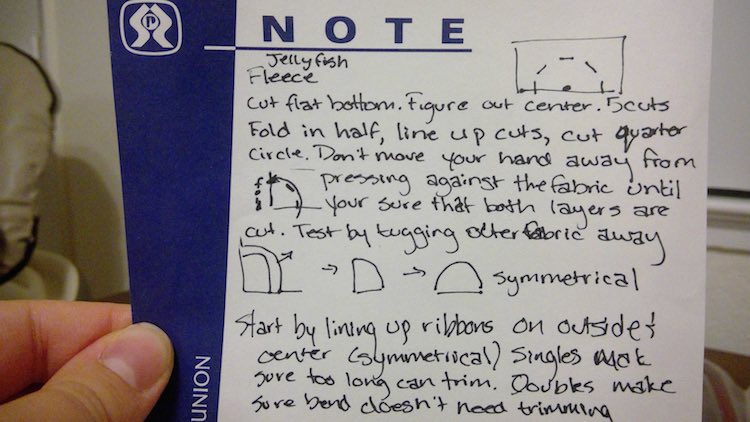 NOTE
Jellyfish
Fleece
Cut flat bottom. Figure out center. 5cuts
Fold in half, line up cuts, cut quarter
circle. Don't move your hand away from
pressing against the fabric until
fold
your sure that both layers are
cut. Test by tugging outer fabric away
symmetrical
Start by lining up ribbons on outside &
center (symmetrical) Singles mak
sure too long can trim. Doubles make
sure bend doesn't need trimming
UNION